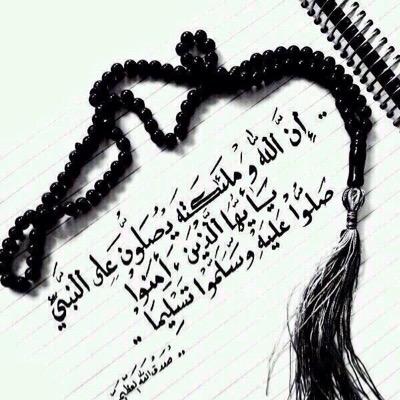 إِنَّ اللَّهَ وَمَلَٰئِكَتَهُ يُصَلُّونَ عَلَى النَّبِيِّ
يَا أَيُّهَا الَّذِينَ ءَامَنُوا
صَلُّوا عَلَيْهِ وَسَلِّمُوا تَسْلِيمًا
صدق الله العظيم